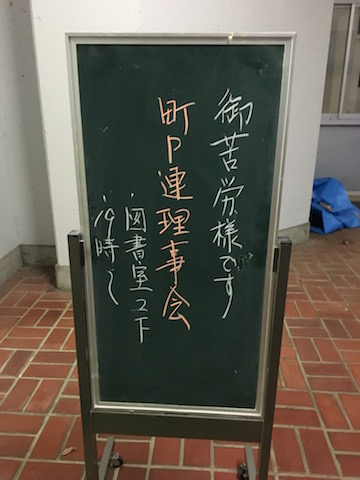 御苦労様です
町P連理事会
・図書室2F
・19時〜